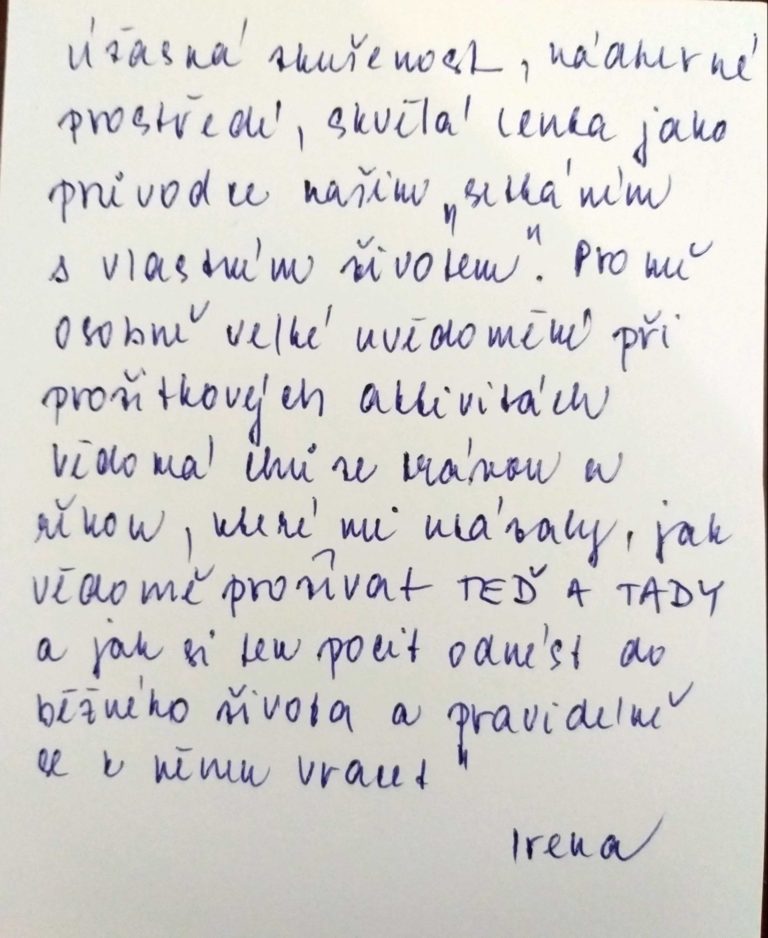 Úžasná zkušenost, nádherné
prostředí, skvělá Lenka jako
průvodce naším „setkáním
s vlastním životem". Pro mě
osobně velké uvědomění při
prožitkových aktivitách
vědomá chůze trávou a
řekou, které mi ukázaly, jak
vědomě prožívat TEĎ A TADY
a jak si ten pocit odnést do
běžného života a pravidelně
se k němu vracet"
Irena